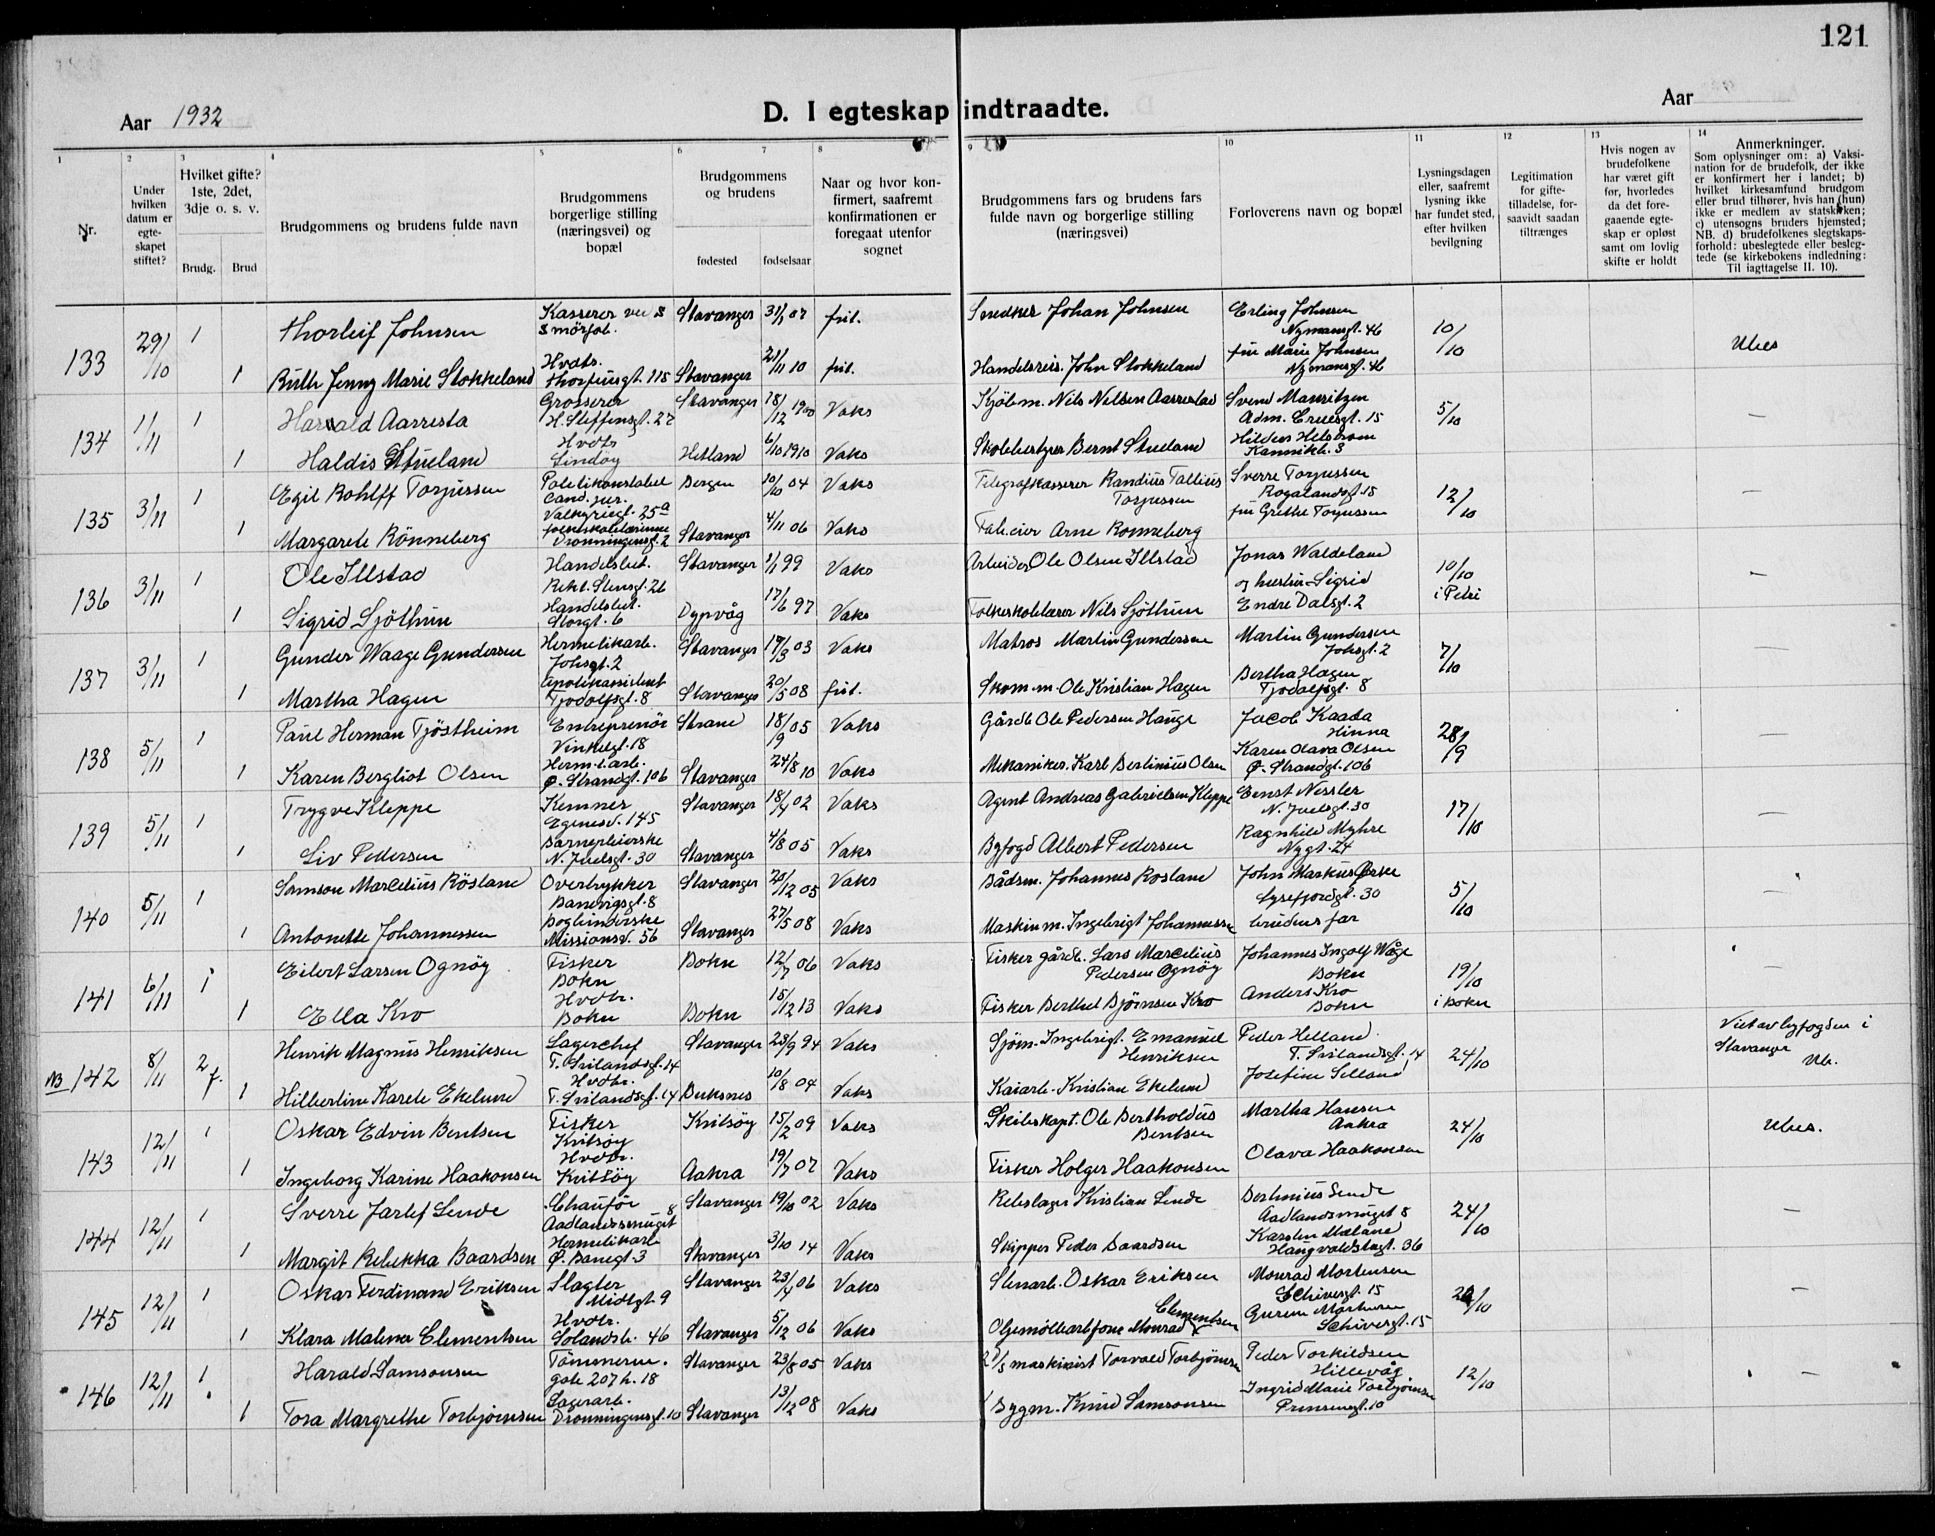 121
Aar 1932
D. I egteskap indtraadte.
Aar
1 2 3 4 5 6 7 8 9 10 11 12 13 14
Nr.
Under hvilken datum er egteskapet stiftet?
Hvilket gifte? 1ste, 2det, 3dje o. s. v.
Brudg. Brud
Brudgommens og brudens fulde navn
Brudgommens borgerlige stilling (næringsvei) og bopæl
Brudgommens og brudens
fødested fødselsaar
Naar og hvor konfirmert, saafremt konfirmationen er foregaat utenfor sognet
Brudgommens fars og brudens fars fulde navn og borgerlige stilling (næringsvei)
Forloverens navn og bopæl
Lysningsdagen eller, saafremt lysning ikke har fundet sted, efter hvilken bevilgning
Legitimation for giftetilladelse, forsaavidt saadan tiltrænges
Hvis nogen av brudefolkene har været gift før, hvorledes da det foregaaende egteskap er opløst samt om lovlig skifte er holdt
Anmerkninger.
Som oplysninger om: a) Vaksination for de brudefolk, der ikke er konfirmert her i landet; b) hvilket kirkesamfund brudgom eller brud tilhører, hvis han (hun) ikke er medlem av statskirken; c) utensogns bruders hjemsted; NB. d) brudefolkenes slegtskapsforhold: ubeslegtede eller beslegtede (se kirkebokens indledning: Til iagttagelse II. 10).
133 29/10 1 Thorleif Johnsen Kasserer ved S smörfab. Stavanger 31/1 07 frit. Snedker Johan Johnsen Erling Johnsen Nymansgt. 46 10/10 Ubes
1 Ruth Jenny Marie Stokkeland Hvdtr. Thorfinsgt. 118 Stavanger 21/11 10 frit. Handelsreis. John Stokkeland fru Marie Johnsen Nymansgt. 46
134 1/11 1 Harald Aarrestad Grosserer H. Steffensgt. 27 Stavanger 18/12 1900 Vaks Kjöbm. Nils Nilsen Aarrestad Svend Mauritzen Adm. Cruesgt. 15 5/10 —
1 Haldis Stueland Hvdtr Lindøy Hetland 6/10 1910 Vaks Skolebestyrer Bernt Stueland Kannikbk. 3
135 3/11 1 Egil Rohlff Torjussen Politikonstabel Cand. jur. Valkyriegt. 25a Bergen 10/10 04 Vaks Telegrafkasserer Torjussen Sverre Torjussen Rogalandsgt. 15 12/10 —
1 Margarete Rönneberg folkeskolelærerinne Dronningensgt. 2 Stavanger 4/11 06 Vaks Fab.eier Arne Ronneberg fru Grethe Torjussen
136 3/11 1 Ole Illstad Handelsbet. Rekt. Stensgt. 26 Stavanger 1/1 99 Vaks Arbeider Ole Olsen Illstad Jonas Waldeland 10/10 i Petri —
1 Sigrid Sjöthun Handelsbet. Storgt. 6 Dypvåg 17/6 97 Vaks Folkeskolelærer Nils Sjöthun og hustru Sigrid Endre Dalsgt. 2
137 3/11 1 Gunder Waage Gundersen Hermetikarb. Johsgt. 2 Stavanger 17/3 03 Vaks Matros Martin Gundersen Martin Gundersen Johsgt. 2 7/10 —
1 Martha Hagen Apotekassistent Tjodolfsgt. 8 Stavanger 20/5 08 frit. Skom.m. Ole Kristian Hagen Bertha Hagen Tjodolfsgt. 8
138 5/11 1 Paul Herman Tjöstheim Entreprenör Vinkelgt. 18 Strand 18/9 05 Vaks Gårdb Ole Pedersen Hauge Jacob Kaada Hinna 28/9 —
1 Karen Bergliot Olsen Hermt.arb. Ø. Strandgt. 106 Stavanger 24/8 10 Vaks Mekaniker. Karl Bertinius Olsen Karen Olava Olsen Ø. Strandgt. 106
139 5/11 1 Trygve Kleppe Kemner Egenesv. 145 Stavanger 18/4 02 Vaks Agent Andreas Gabrielsen Kleppe Ernst Nessler N. Juelsgt. 30 17/10 —
1 Liv Pedersen Barnepleierske N. Juelsgt. 30 Stavanger 4/8 05 Vaks Byfogd Albert Pedersen Ragnhild Myhre Nygt. 24
140 5/11 1 Samson Marcelius Rösland Overtrykker Banevigsgt. 8 Stavanger 20/12 05 Vaks Bådsm. Johannes Rosland John Markus Ørske Lysefjordgt. 30 5/10 —
1 Antonette Johannessen Bogbinderske Missionsv. 56 Stavanger 27/5 08 Vaks Maskin m. Ingebrigt Johannessen brudens far
141 6/11 1 Eilert Larsen Ognöy Fisker Bokn Bokn 12/7 06 Vaks Fisker gårdb. Lars Marcelius Pedersen Ognöy Johannes Ingolf Våge Bokn 19/10 i Bokn —
1 Ella Kro Hvdtr. Bokn Bokn 15/12 13 Vaks Fisker Berthel Bjørnsen Kro Anders Kro Bokn
NB 142 8/11 2 f. Henrik Magnus Henriksen Lagerchef T. Svilandsgt. 14 Stavanger 23/9 94 Vaks Sjöm. Ingebrigt Emanuel Henriksen Peder Helland T. Svilandsgt. 14 24/10 Viet av byfogden i Stavanger Ub.
1 Hilbertine Karete Ekelund Hvdtr. T. Svilandsgt. 14 Buksnes 10/8 04 Vaks Kaiarb. Kristian Ekelund Josefine Selland
143 12/11 1 Oskar Edvin Bentsen Fisker Kvitsöy Kvitsöy 15/2 09 Vaks Skibskapt. Ole Bertholdus Bentsen Martha Hansen Aakra 24/10 Ubes.
1 Ingeborg Karine Haakonsen Hvdtr. Kvitsöy Aakra 19/7 07 Vaks Fisker Holger Haakonsen Olava Haakonsen
144 12/11 1 Sverre Jarlef Sende Chauför Aadlandssmuget 8 Stavanger 19/10 02 Vaks Rebslager Kristian Sende Bertinius Sende Aadlandsmuget 8 24/10 —
1 Margit Rebekka Baardsen Hermetikarb Ø. Banegt. 3 Stavanger 3/10 14 Vaks Skipper Peder Baardsen Karsten Maland Haugvaldstadgt. 36
145 12/11 1 Oskar Ferdinand Eriksen Slagter Midtgt. 9 Stavanger 23/4 06 Vaks Stenarb. Oskar Eriksen Monrad Mortensen Schivesgt. 15 20/10 —
1 Klara Malena Clementsen Hvdtr. Solandsb. 46 Stavanger 5/12 06 Vaks Monrad Clementsen Mortensen Schivesgt. 15
146 12/11 1 Harald Samsonsen Tömmerm. gate 207 h. 18 Stavanger 23/8 05 Vaks maskinist Torvald Torbjörnsen Peder Torkildsen Hillevåg 12/10 —
1 Tora Margrethe Torbjörnsen Lagerarb. Dronningensgt. 10 Stavanger 13/12 08 Vaks Bygm. Knud Samsonsen Ingrid Marie Torbjörnsen Prinsensgt. 10